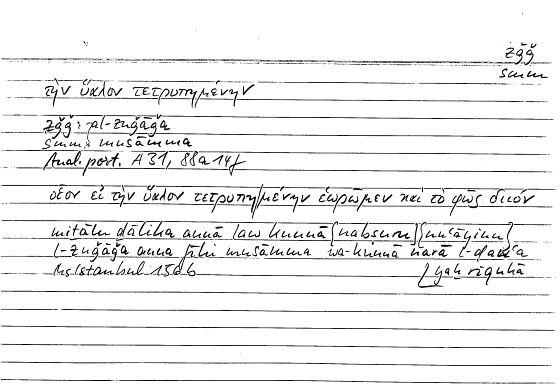 zǧǧ
smm
τὴν ὕαλον τετρυπημένην
zǧǧ: al-zuǧāǧa
smm: musāmma
Anal. post. A 31, 88a 14f
οἷον εἰ τὴν ὕαλον τετρυπημένην ἑωρῶμεν καὶ τὸ φῶς διιόν
miṯālu ḏālika annā law kunnā {nabṣuru} {nuʿāyinu}
l-zuǧāǧa anna fīhi musāmma wa-kunnā narā l-ḍawʾa
Ms Istanbul 1566 yaḫriquhā